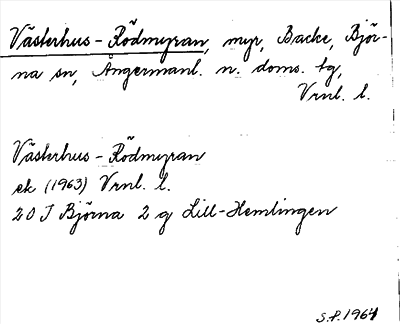 Västerhus-Rödmyran, myr, Backe, Björ-
na sn, Ångermanl. n. doms. tg,
Vrnl. l.
Västerhus-Rödmyran
ek (1963) Vrnl. l.
20 J Björna 2 g Lill-Hemlingen
S.P. 1964